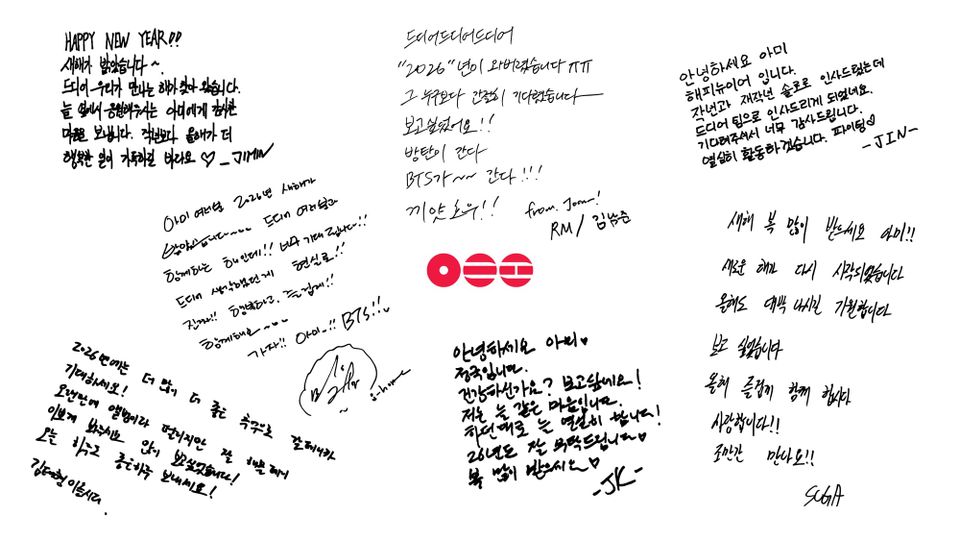 HAPPY NEW YEAR!!
새해가 밝았습니다~.
드디어 우리가 만나는 해가 찾아 왔습니다.
늘 옆에서 응원해주시는 아미에게 감사한
마음을 보냅니다. 작년보다 올해가 더
행복한 일이 가득하길 바라요 ♡ _JIMIN
드디어드디어드디어
"2026"년이 와버렸습니다 ㅠㅠ
그 누구보다 간절히 기다렸습니다
보고싶었어요!!
방탄이 간다
BTS가~~ 간다!!!
끼얏호우!!
from. Joon!
RM / 김남준
안녕하세요 아미
해피뉴이어 입니다.
작년과 재작년 솔로로 인사드렸는데
드디어 팀으로 인사드리게 되었네요.
기다려주셔서 너무 감사드립니다.
열심히 활동하겠습니다. 파이팅♡
-JIN-
아미 여러분 2026년 새해가
밝았습니다~~~ 드디어 여러분과
함께하는 해인데!! 너무 기대됩니다!!
드디어 생각했던게 현실로!!
진짜!! 행복하고, 즐겁게!!
함께해요~~~
가자!! 아미~!! BTS!!
새해 복 많이 받으세요 아미!!
새로운 해가 다시 시작되었습니다
올해도 대박 나시길 기원합니다
보고 싶었습니다
올해 즐겁게 함께 합시다
사랑합니다!!
조만간 만나요!!
SUGA
2026년에는 더 많이 더 좋은 추억으로 갈테니까
기대하세요!
오랜만에 앨범이라 떨리지만 잘
이쁘게 봐주시요 많이 보고싶었습니다!
오늘 하루도 좋은하루 보내세요!
김태형 이올시다.
안녕하세요 아미♡
정국입니다.
건강하신가요? 보고답네요!
저는 늘 같은 마음입니다.
하던대로 늘 열심히 합니다!
26년도 잘 부탁드립니다♡
복 많이 받으세요♡
-JK-